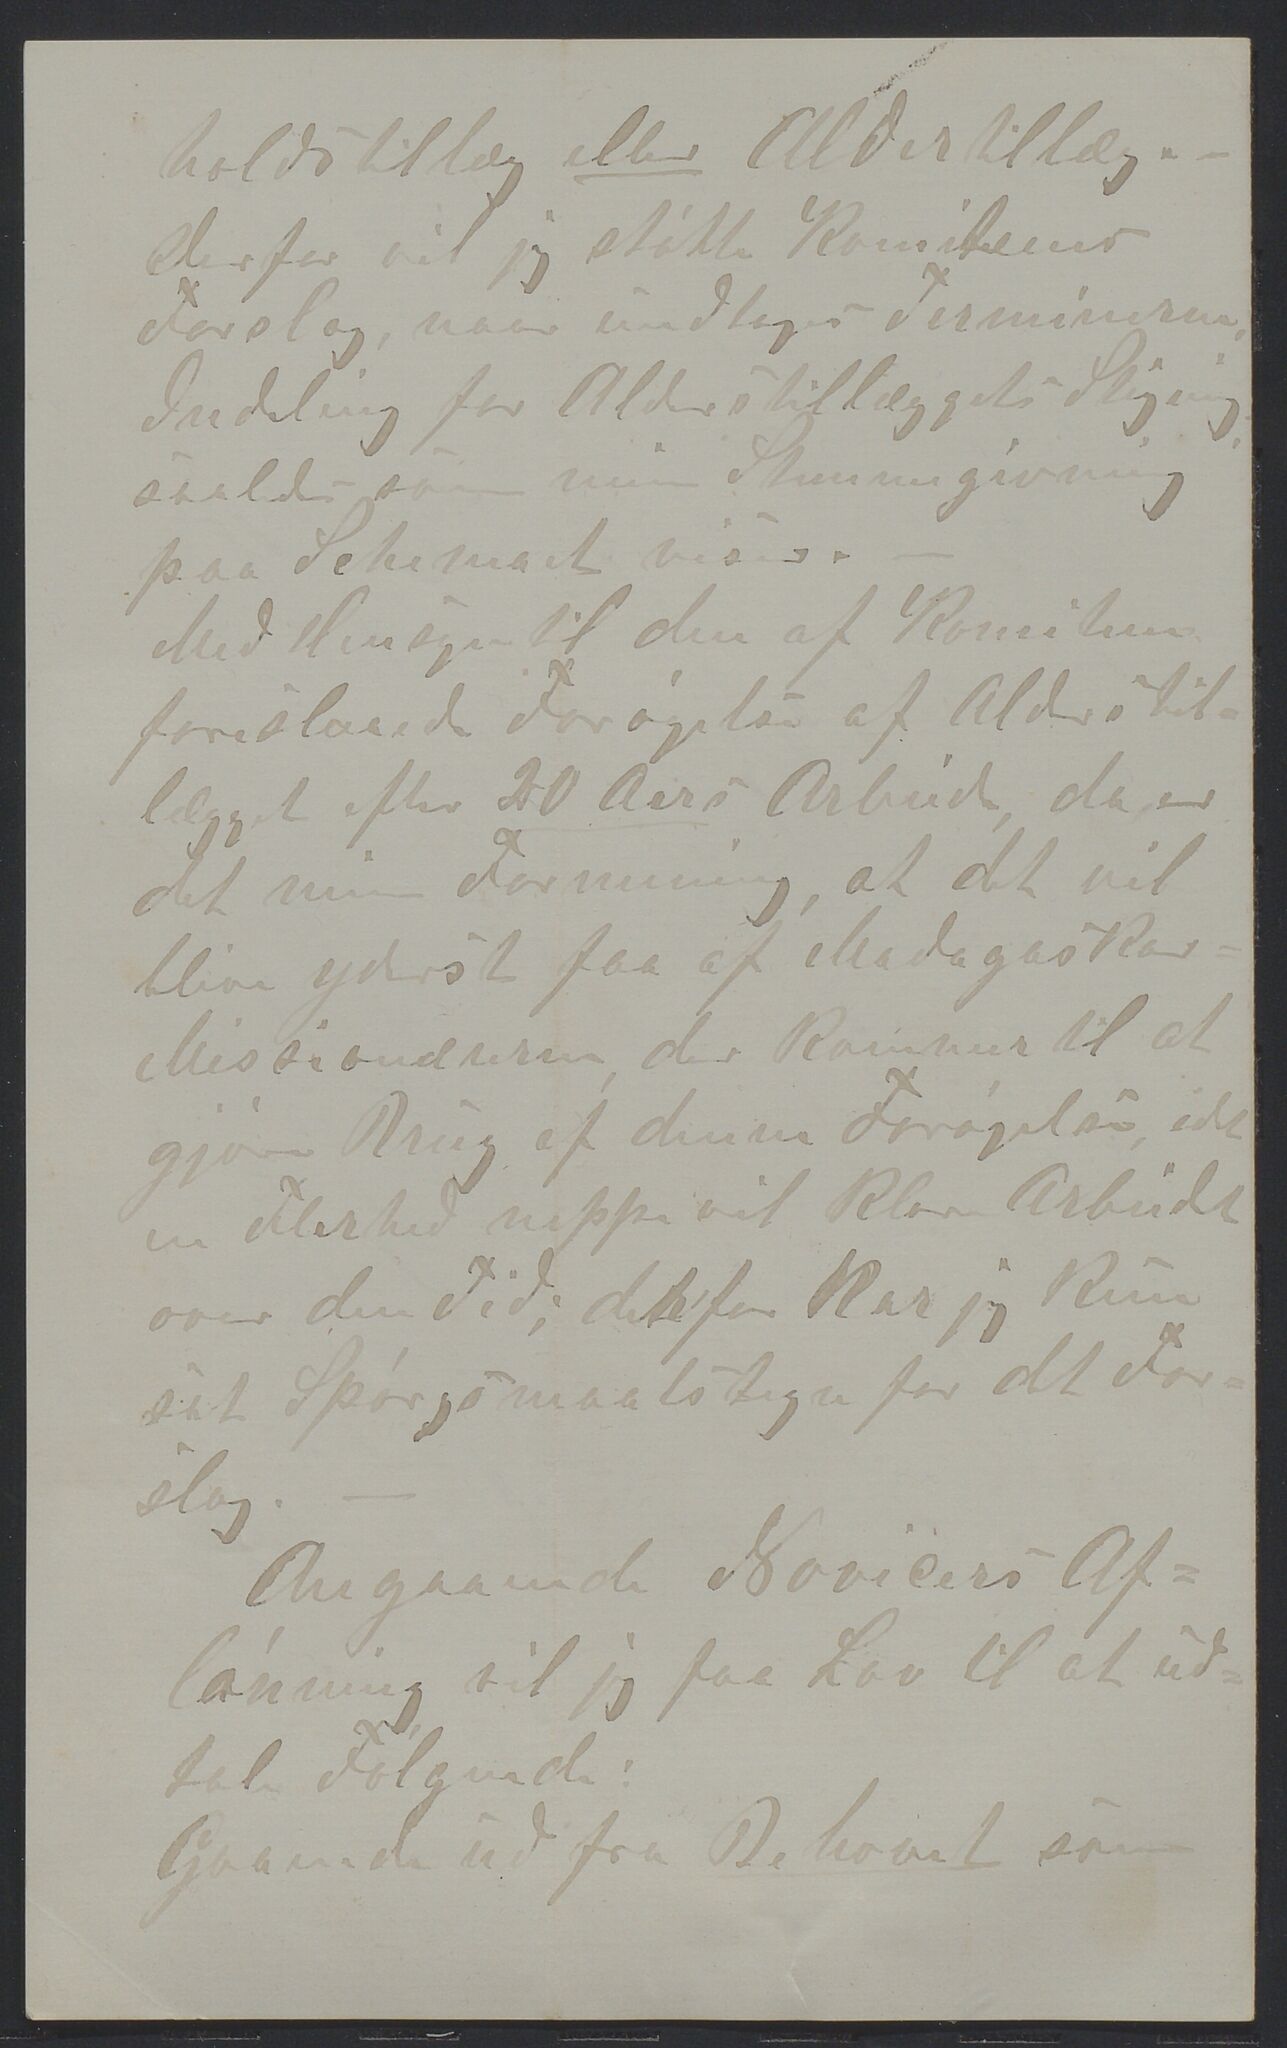 holdstillæg eller Alderstillæg. –
derfor vil jeg støtte Komiteens
Forslag, naar undtages Terminerne,
Indeling for Alderstillæggets Stigning
saaledes som min Stemmegivning
paa Schemaet viser. –
Med Hensyn til den af Komiteen
foreslaaede Forøgelse af Alderstil=
lægget efter 20 Aars Arbeide, da er
det min Formening, at det vil
blive yderst faa af Madagaskar=
Missionærerne, der kommer til at
gjøre Brug af denne Forøgelse, idet
en Flerhed neppe vil klare Arbeidet
over den Tid; derfor har jeg kun
sat Spørgsmaalstegn for det For=
slag. –
Angaaende Novicers Af=
lønning vil jeg faa Lov til at ud=
tale Følgende:
Gaaende ud fra Behovet som